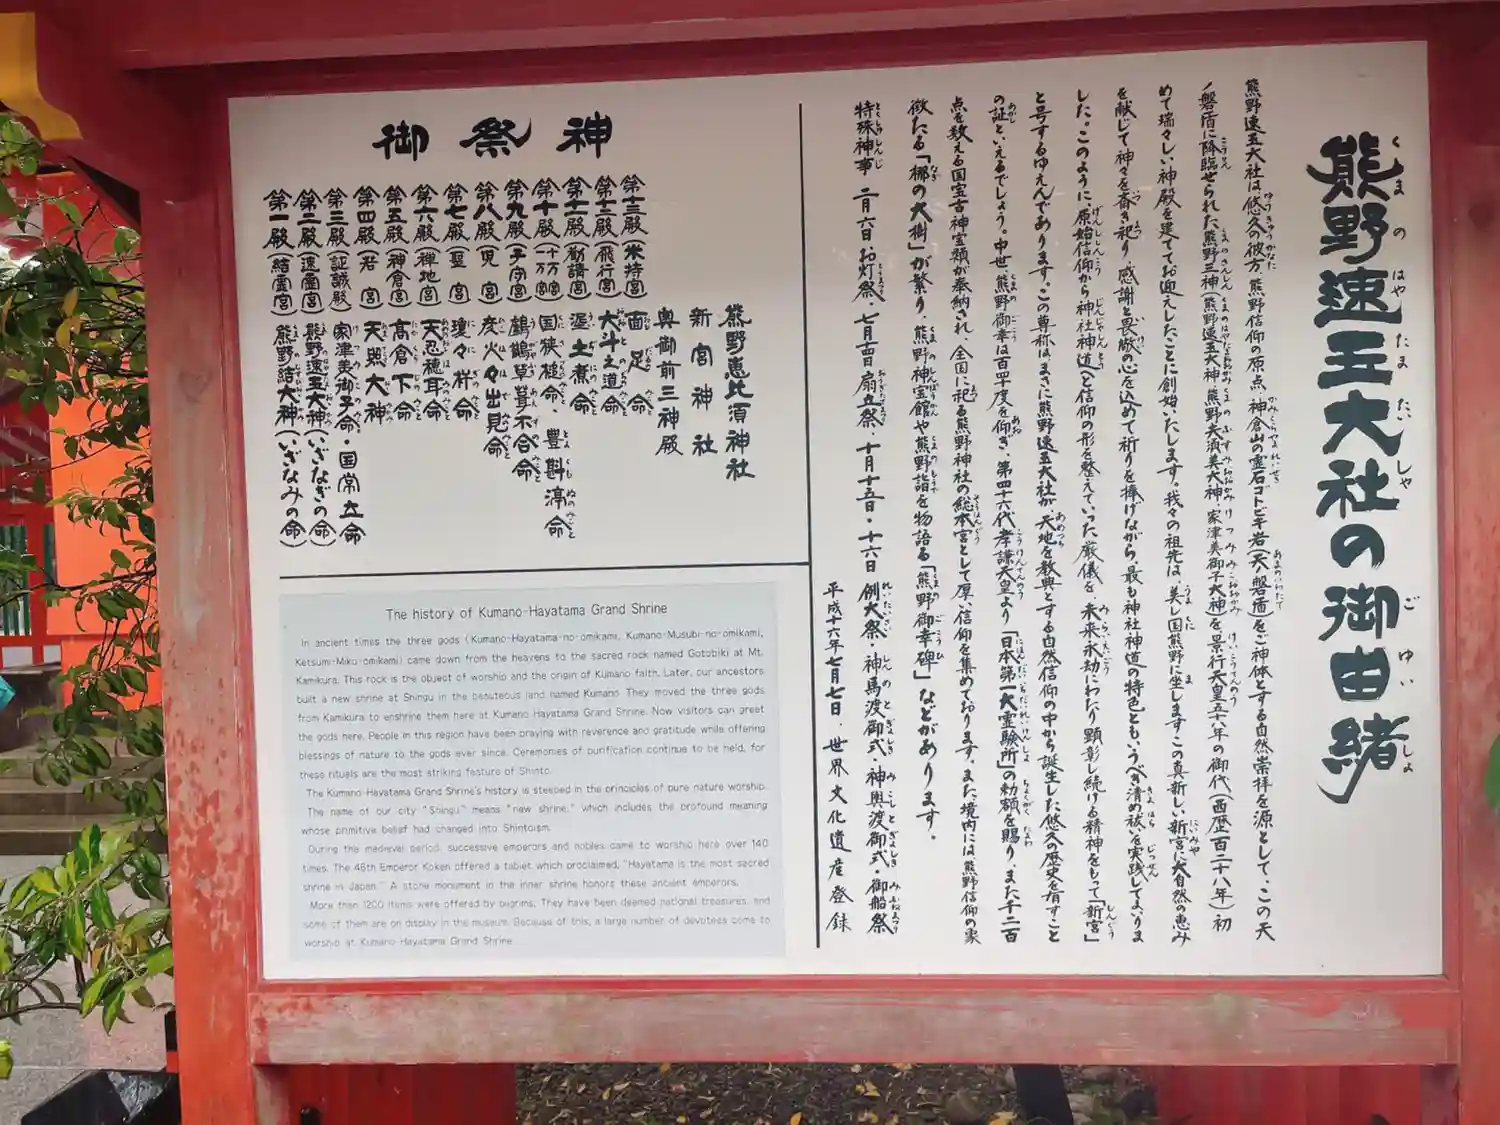 熊野速玉大社の御由緒
熊野速玉大社は悠久の彼方、熊野信仰の原点、神倉山の霊石ゴトビキ岩(天ノ磐盾)をご神体とする自然崇拝を源として、この天
ノ磐盾に降臨せられた熊野三神(熊野速玉大神・熊野夫須美大神・家津美御子大神)を景行天皇五十八年の御代(西歴百二十八年)初
めて瑞々しい神殿を建てゝお迎えしたことに創始いたします。我々の祖先は、美し国熊野に坐しますこの真新しい新宮に大自然の恵み
を献じて神々を斎き祀り、感謝と畏敬の心を込めて祈りを捧げながら、最も神社神道の特色ともいうべき清め祓いを実践してまいりま
した。このように、原始信仰から神社神道へと信仰の形を整えていった厳儀を、未来永劫にわたり顕彰し続ける精神をもって「新宮」
と号するゆえんであります。この尊称はまさに熊野速玉大社が、天地を教典とする自然信仰の中から誕生した悠久の歴史を有すこと
の証といえるでしょう。中世、熊野御幸は百四十度を仰ぎ、第四十六代孝謙天皇より「日本第一大霊験所」の勅額を賜り、また千二百
点を数える国宝古神宝類が奉納され、全国に祀る熊野神社の総本宮として厚い信仰を集めております。また境内には熊野信仰の象
徴たる「梛の大樹」が繁り、熊野神宝館や熊野詣を物語る「熊野御幸碑」などがあります。
特殊神事 二月六日・お灯祭・七月十四日 扇立祭・十月十五日・十六日 例大祭・神馬渡御式・神輿渡御式・御船祭
平成十六年七月七日・世界文化遺産登録
御祭神
第一殿(結霊宮) 熊野結大神(いざなみの命)
第二殿(速霊宮) 熊野速玉大神(いざなぎの命)
第三殿(証誠殿) 家津美御子命・国常立命
第四殿(若宮) 天照大神
第五殿(神倉宮) 高倉下命
第六殿(禅地宮) 天忍穂耳命
第七殿(聖宮) 瓊々杵命
第八殿(児宮) 彦火々出見命
第九殿(子守宮) 鸕鶿草葺不合命
第十殿(一万宮十万宮) 国狭槌命・豊斟渟命
第十一殿(勧請宮) 泥土煮命
第十二殿(飛行宮) 大斗之道命
第十三殿(米持宮) 面足命
奥御前三神殿
新宮神社
熊野恵比須神社
The history of Kumano-Hayatama Grand Shrine
In ancient times the three gods (Kumano-Hayatama-no-omikami, Kumano-Musubi-no-omikami,
Ketsumi-Miko-omikami) came down from the heavens to the sacred rock named Gotobiki at Mt.
Kamikura. This rock is the object of worship and the origin of Kumano faith. Later, our ancestors
built a new shrine at Shingu in the beauteous land named Kumano. They moved the three gods
from Kamikura to enshrine them here at Kumano Hayatama Grand Shrine. Now visitors can greet
the gods here. People in this region have been praying with reverence and gratitude while offering
blessings of nature to the gods ever since. Ceremonies of purification continue to be held, for
these rituals are the most striking feature of Shinto.
The Kumano-Hayatama Grand Shrine's history is steeped in the principles of pure nature worship.
The name of our city "Shingu" means "new shrine," which includes the profound meaning
whose primitive belief had changed into Shintoism.
During the medieval period, successive emperors and nobles came to worship here over 140
times. The 46th Emperor Koken offered a tablet which proclaimed, "Hayatama is the most sacred
shrine in Japan." A stone monument in the inner shrine honors these ancient emperors.
More than 1200 items were offered by pilgrims. They have been deemed national treasures, and
some of them are on display in the museum. Because of this, a large number of devotees come to
worship at Kumano-Hayatama Grand Shrine.